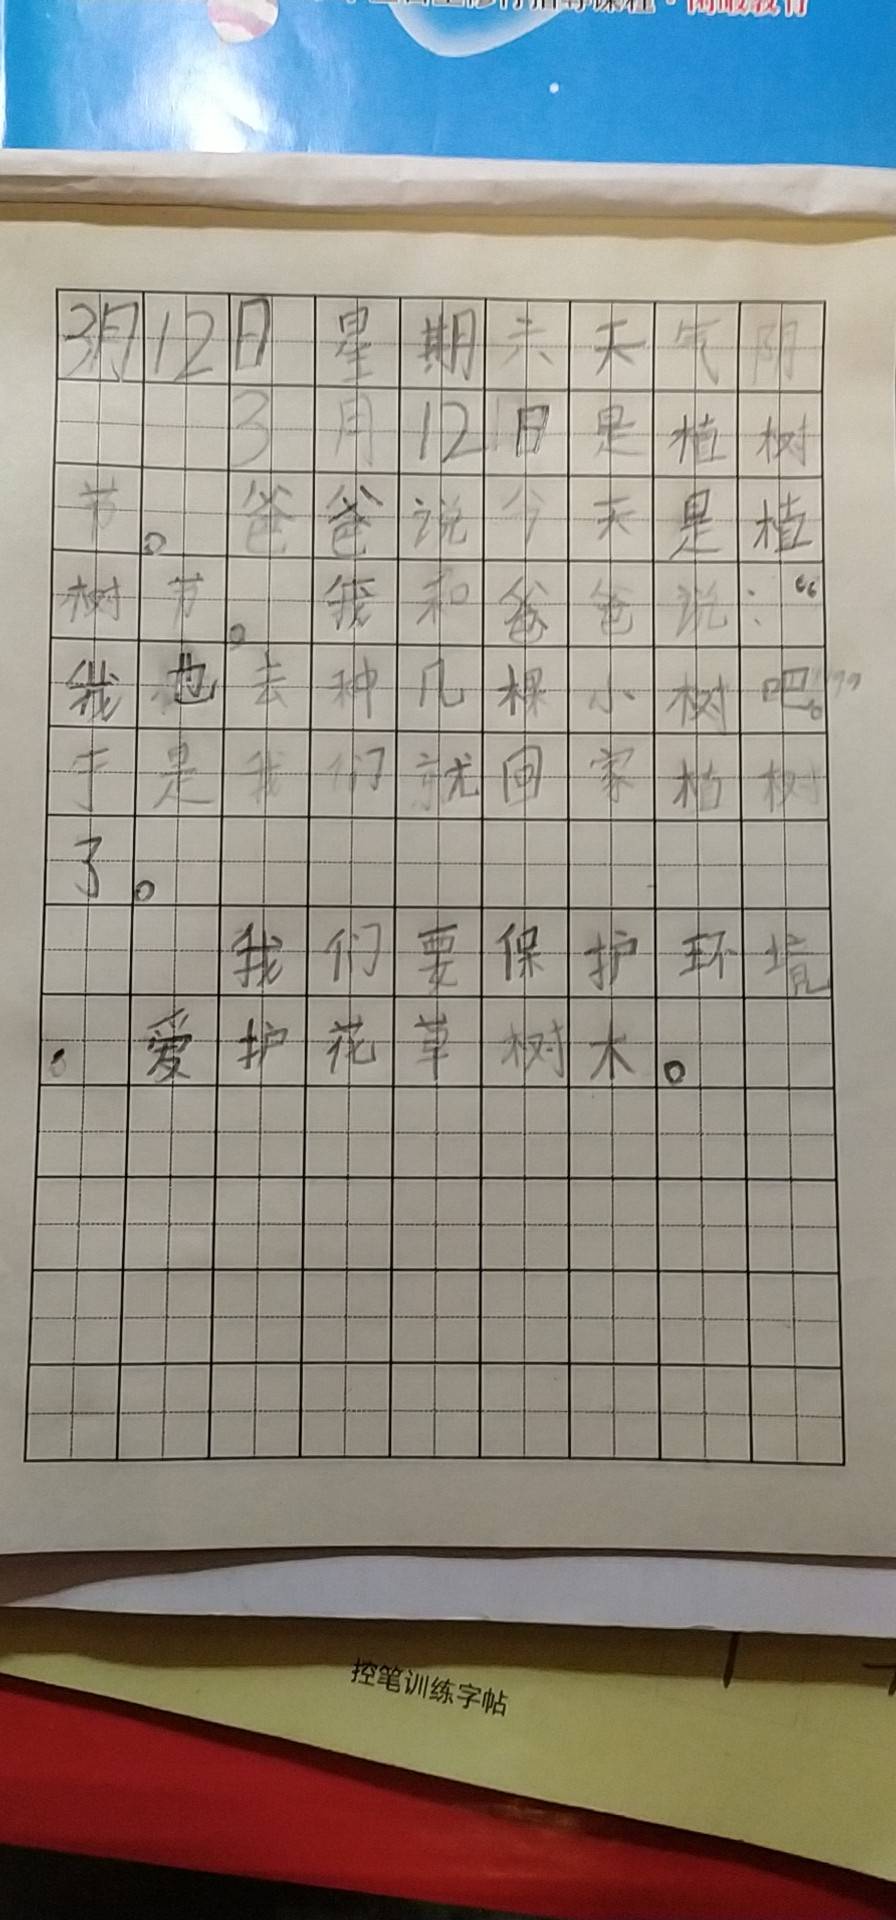 闲暇教育
3月12日 星期六天气阴
3月12日是植树
节。爸爸说今天是植
树节。我和爸爸说：“
我也去种几棵小树吧。”
于是我们就回家植树
了。
我们要保护环境
。爱护花草树木。
控笔训练字帖